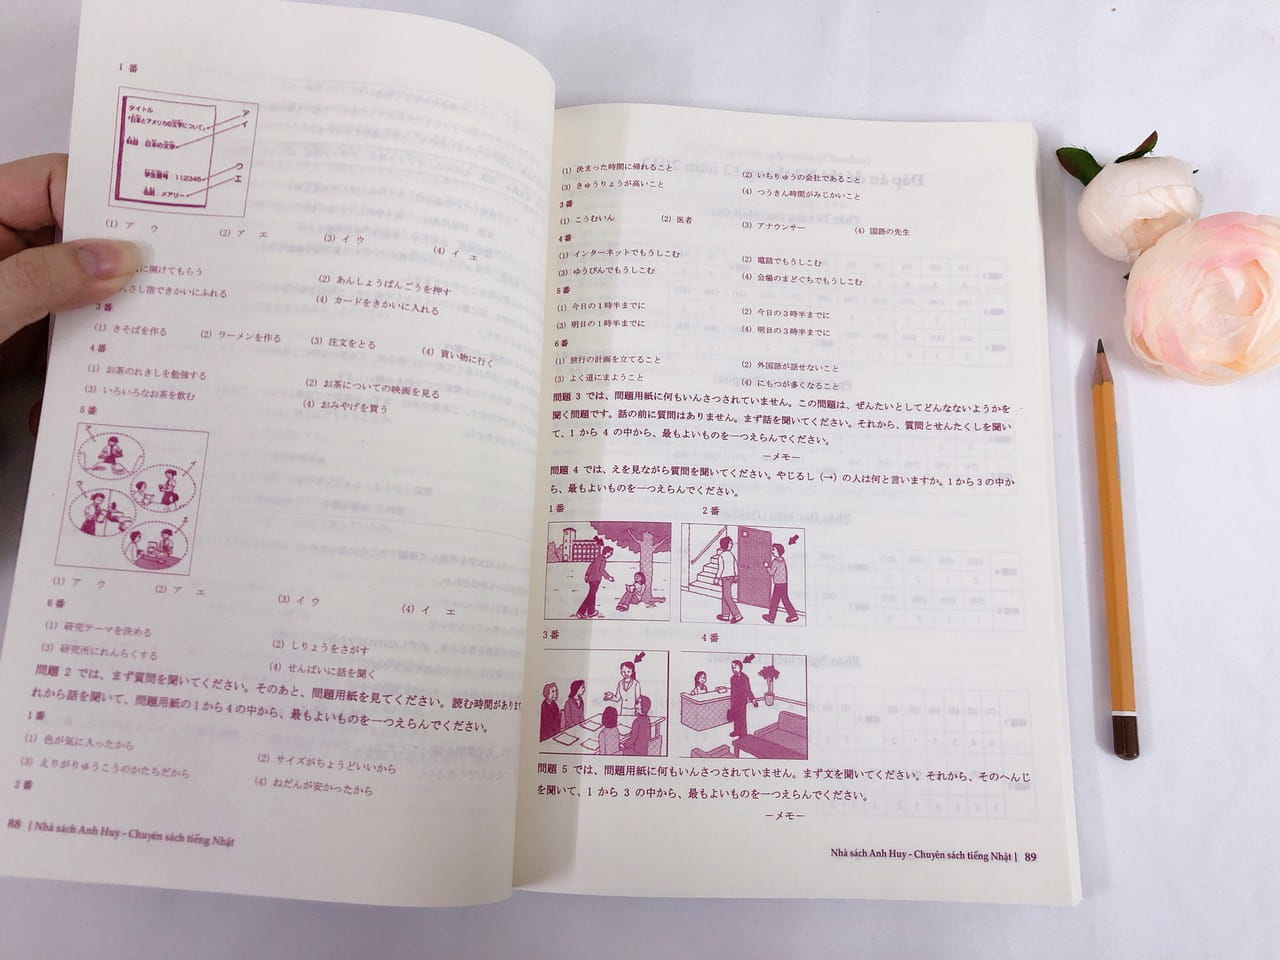 1 番
タイトル
「日本とアメリカの文学について」
科目：日本の文学
学生番号：112345
名前：メアリー
ア
イ
ウ
エ
(1) ア ウ (2) ア エ (3) イ ウ (4) イ エ
に開けてもらう (2) あんしょうばんごうを押す
さし指できかいにふれる (4) カードをきかいに入れる
3 番
(1) きそばを作る (2) ラーメンを作る (3) 注文をとる (4) 買い物に行く
4 番
(1) お茶のれきしを勉強する (2) お茶についての映画を見る
(3) いろいろなお茶を飲む (4) おみやげを買う
5 番
ア
イ
ウ
エ
(1) ア ウ (2) ア エ (3) イ ウ (4) イ エ
6 番
(1) 研究テーマを決める (2) しりょうをさがす
(3) 研究所にれんらくする (4) せんぱいに話を聞く
問題 2 では、まず質問を聞いてください。そのあと、問題用紙を見てください。読む時間があります
れから話を聞いて、問題用紙の1から4の中から、最もよいものを一つえらんでください。
1 番
(1) 色が気に入ったから (2) サイズがちょうどいいから
(3) えりがりゅうこうのかたちだから (4) ねだんが安かったから
2 番
88 | Nhà sách Anh Huy - Chuyên sách tiếng Nhật
(1) 決まった時間に帰れること (2) いちりゅうの会社であること
(3) きゅうりょうが高いこと (4) つうきん時間がみじかいこと
3 番
(1) こうむいん (2) 医者 (3) アナウンサー (4) 国語の先生
4 番
(1) インターネットでもうしこむ (2) 電話でもうしこむ
(3) ゆうびんでもうしこむ (4) 会場のまどぐちでもうしこむ
5 番
(1) 今日の1時半までに (2) 今日の3時半までに
(3) 明日の1時半までに (4) 明日の3時半までに
6 番
(1) 旅行の計画を立てること (2) 外国語が話せないこと
(3) よく道にまようこと (4) にもつが多くなること
問題 3 では、問題用紙に何もいんさつされていません。この問題は、ぜんたいとしてどんなないようかを
聞く問題です。話の前に質問はありません。まず話を聞いてください。それから、質問とせんたくしを聞い
て、1 から 4 の中から、最もよいものを一つえらんでください。
－メモ－
問題 4 では、えを見ながら質問を聞いてください。やじるし（→）の人は何と言いますか。1から3の中か
ら、最もよいものを一つえらんでください。
1 番 2 番
3 番 4 番
問題 5 では、問題用紙に何もいんさつされていません。まず文を聞いてください。それから、そのへんじ
を聞いて、1 から 3 の中から、最もよいものを一つえらんでください。
－メモ－
Nhà sách Anh Huy - Chuyên sách tiếng Nhật | 89